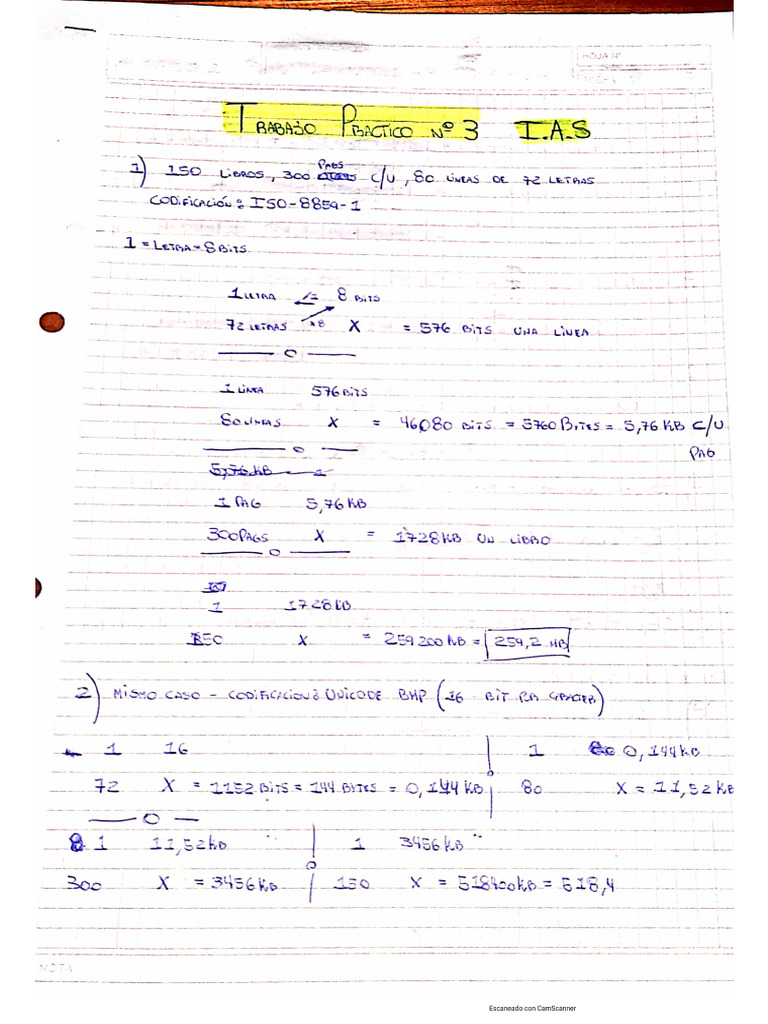 HOJA Nº
FECHA
TRABAJO PRACTICO Nº 3 I.A.S
1) 150 LIBROS, 300 PAGS C/U, 80 LINEAS DE 72 LETRAS
CODIFICACIÓN: ISO-8859-1
1 = LETRA = 8 BITS
1 LETRA 8 BITS
72 LETRAS x8 X = 576 BITS UNA LINEA
1 LINEA 576 BITS
80 LINEAS X = 46080 BITS = 5760 BITES = 5,76 KB C/U
PAG
5,76 KB 1
1 PAG 5,76 KB
300 PAGS X = 1728 KB UN LIBRO
1 1728 KB
150 X = 259200 KB = 259,2 MB
2) MISMO CASO - CODIFICACION: UNICODE BMP (16 BIT PRA CARACTER)
1 16
72 X = 1152 BITS = 144 BITES = 0,144 KB
1 0,144 KB
80 X = 11,52 KB
1 11,52 KB
300 X = 3456 KB
1 3456 KB
150 X = 518400 KB = 518,4
NOTA
Escaneado con CamScanner